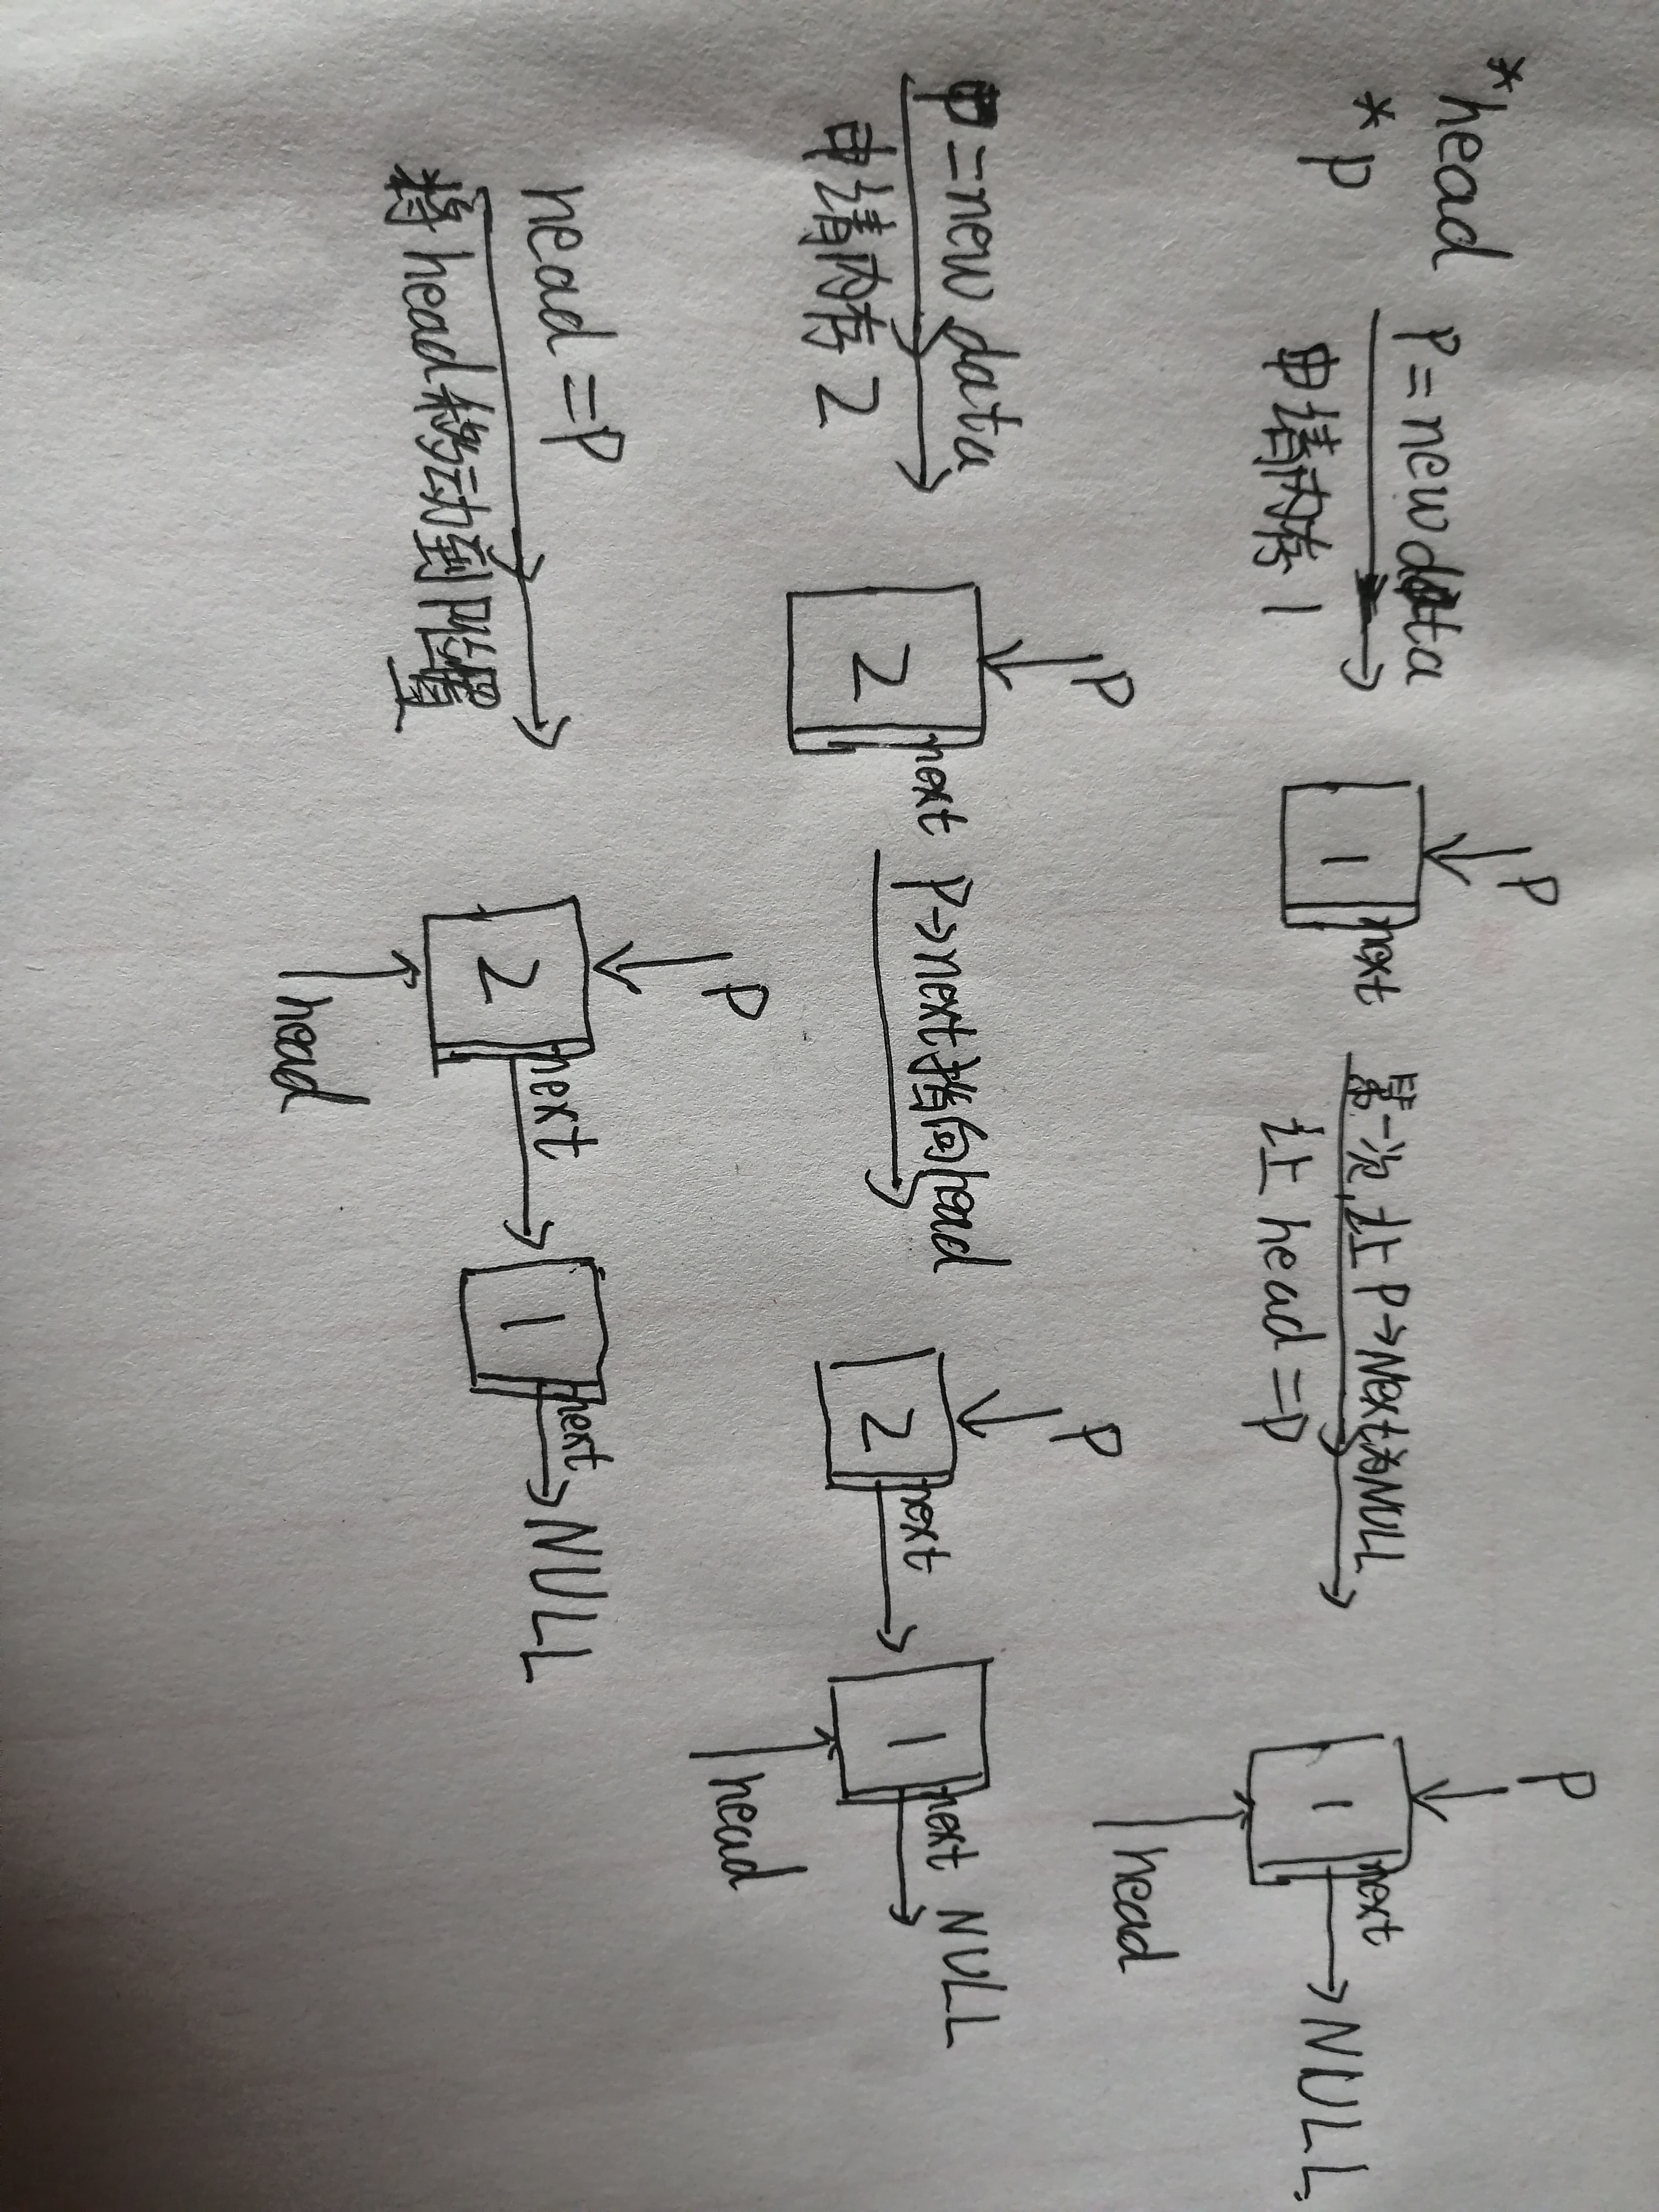 *head
*p
P=new data
申请内存1
P
1
next
第一次,让P→Next为NULL
让head=P
P
1
next
→NULL
head
P=new data
申请内存2
P
2
next
P→next指向head
P
2
next
1
next
NULL
head
head=P
将head移动到P位置
P
2
next
head
1
next
→NULL